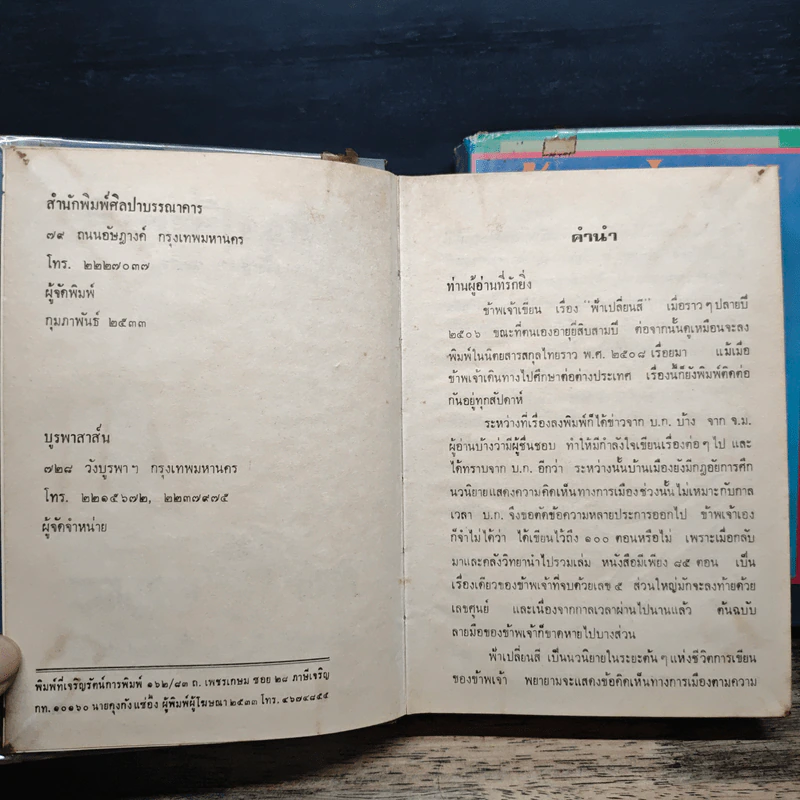 สำนักพิมพ์ศิลปาบรรณาคาร
๗๙ ถนนอัษฎางค์ กรุงเทพมหานคร
โทร. ๒๒๒๗๐๓๗
ผู้จัดพิมพ์
กุมภาพันธ์ ๒๕๓๓
บูรพาสาส์น
๗๒๘ วังบูรพาฯ กรุงเทพมหานคร
โทร. ๒๒๑๕๖๗๒, ๒๒๓๗๙๗๕
ผู้จัดจำหน่าย
พิมพ์ที่เจริญรัตน์การพิมพ์ ๑๖๒/๘๓ ถ. เพชรเกษม ซอย ๒๘ ภาษีเจริญ
กท. ๑๐๑๖๐ นายคุงกัง แซ่อึ้ง ผู้พิมพ์ผู้โฆษณา ๒๕๓๓ โทร. ๔๖๗๔๘๕๕
คำนำ
ท่านผู้อ่านที่รักยิ่ง
ข้าพเจ้าเขียน เรื่อง "ฟ้าเปลี่ยนสี" เมื่อราวๆปลายปี
๒๕๐๖ ขณะที่ตนเองอายุยี่สิบสามปี ต่อจากนั้นดูเหมือนจะลง
พิมพ์ในนิตยสารสกุลไทยราว พ.ศ. ๒๕๐๘ เรื่อยมา แม้เมื่อ
ข้าพเจ้าเดินทางไปศึกษาต่อต่างประเทศ เรื่องนี้ก็ยังพิมพ์ติดต่อ
กันอยู่ทุกสัปดาห์
ระหว่างที่เรื่องลงพิมพ์ก็ได้ข่าวจาก บ.ก. บ้าง จาก จ.ม.
ผู้อ่านบ้างว่ามีผู้ชื่นชอบ ทำให้มีกำลังใจเขียนเรื่องต่อๆ ไป และ
ได้ทราบจาก บ.ก. อีกว่า ระหว่างนั้นบ้านเมืองยังมีกฎอัยการศึก
นวนิยายแสดงความคิดเห็นทางการเมืองช่วงนั้นไม่เหมาะกับกาล
เวลา บ.ก. จึงขอตัดข้อความหลายประการออกไป ข้าพเจ้าเอง
ก็จำไม่ได้ว่า ได้เขียนไว้ถึง ๑๐๐ ตอนหรือไม่ เพราะเมื่อกลับ
มาและคลังวิทยานำไปรวมเล่ม หนังสือมีเพียง ๘๕ ตอน เป็น
เรื่องเดียวของข้าพเจ้าที่จบด้วยเลข ๕ ส่วนใหญ่มักจะลงท้ายด้วย
เลขศูนย์ และเนื่องจากกาลเวลาผ่านไปนานแล้ว ต้นฉบับ
ลายมือของข้าพเจ้าก็ขาดหายไปบางส่วน
ฟ้าเปลี่ยนสี เป็นนวนิยายในระยะต้นๆแห่งชีวิตการเขียน
ของข้าพเจ้า พยายามจะแสดงข้อคิดเห็นทางการเมืองตามความ